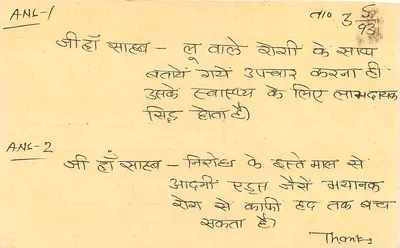 ANS-1
ता० 3/5/93
जी हाँ साहब - लू वाले रोगी के साथ
बतायें गयें उपचार करना ही
उसके स्वास्थ्य के लिए लाभदायक
सिद्ध होता है।
ANS-2
जी हाँ साहब - निरोध के इस्तेमाल से
आदमी एड्स जैसे भयानक
रोग से काफी हद तक बच
सकता है।
Thanks